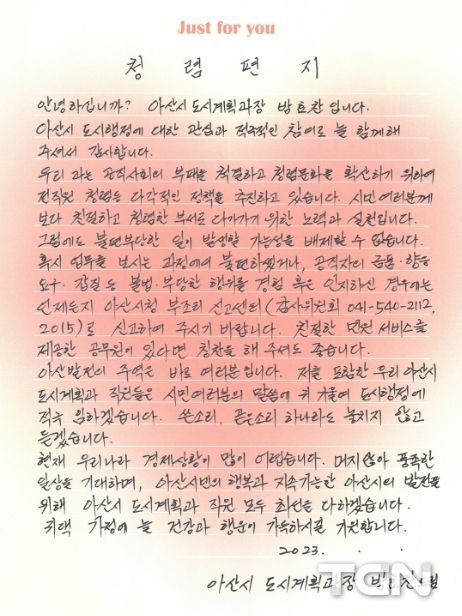 Just for you
청 렴 편 지
안녕하십니까? 아산시 도시계획과장 방효찬입니다.
아산시 도시행정에 대한 관심과 적극적인 참여로 늘 함께해
주셔서 감사합니다.
우리 과는 공직사회의 부패를 척결하고 청렴문화를 확산하기 위하여
전직원 청렴등 다각적인 정책을 추진하고 있습니다. 시민여러분께
보다 친절하고 청렴한 부서로 다가가기 위한 노력과 실천입니다.
그럼에도 불편부당한 일이 발생할 가능성을 배제할 수 없습니다.
혹시 업무를 보시는 과정에서 불편하셨거나, 공직자의 금품·향응
요구·갑질 등 불법·부당한 행위를 경험 혹은 인지하신 경우에는
언제든지 아산시청 부조리 신고센터(감사위원회 041-540-2112,
2015)로 신고하여 주시기 바랍니다. 친절한 민원 서비스를
제공한 공무원이 있다면 칭찬을 해 주셔도 좋습니다.
아산발전의 주역은 바로 여러분입니다. 저를 포함한 우리 아산시
도시계획과 직원들은 시민여러분의 말씀에 귀 기울여 도시행정에
적극 임하겠습니다. 쓴소리, 곧은소리 하나라도 놓치지 않고
듣겠습니다.
현재 우리나라 경제상황이 많이 어렵습니다. 머지않아 풍족한
일상을 기대하며, 아산시민의 행복과 지속가능한 아산시의 발전을
위해 아산시 도시계획과 직원 모두 최선을 다하겠습니다.
귀댁 가정에 늘 건강과 행운이 가득하시길 기원합니다.
2023. . .
아산시 도시계획과장 방효찬 드림
TGN